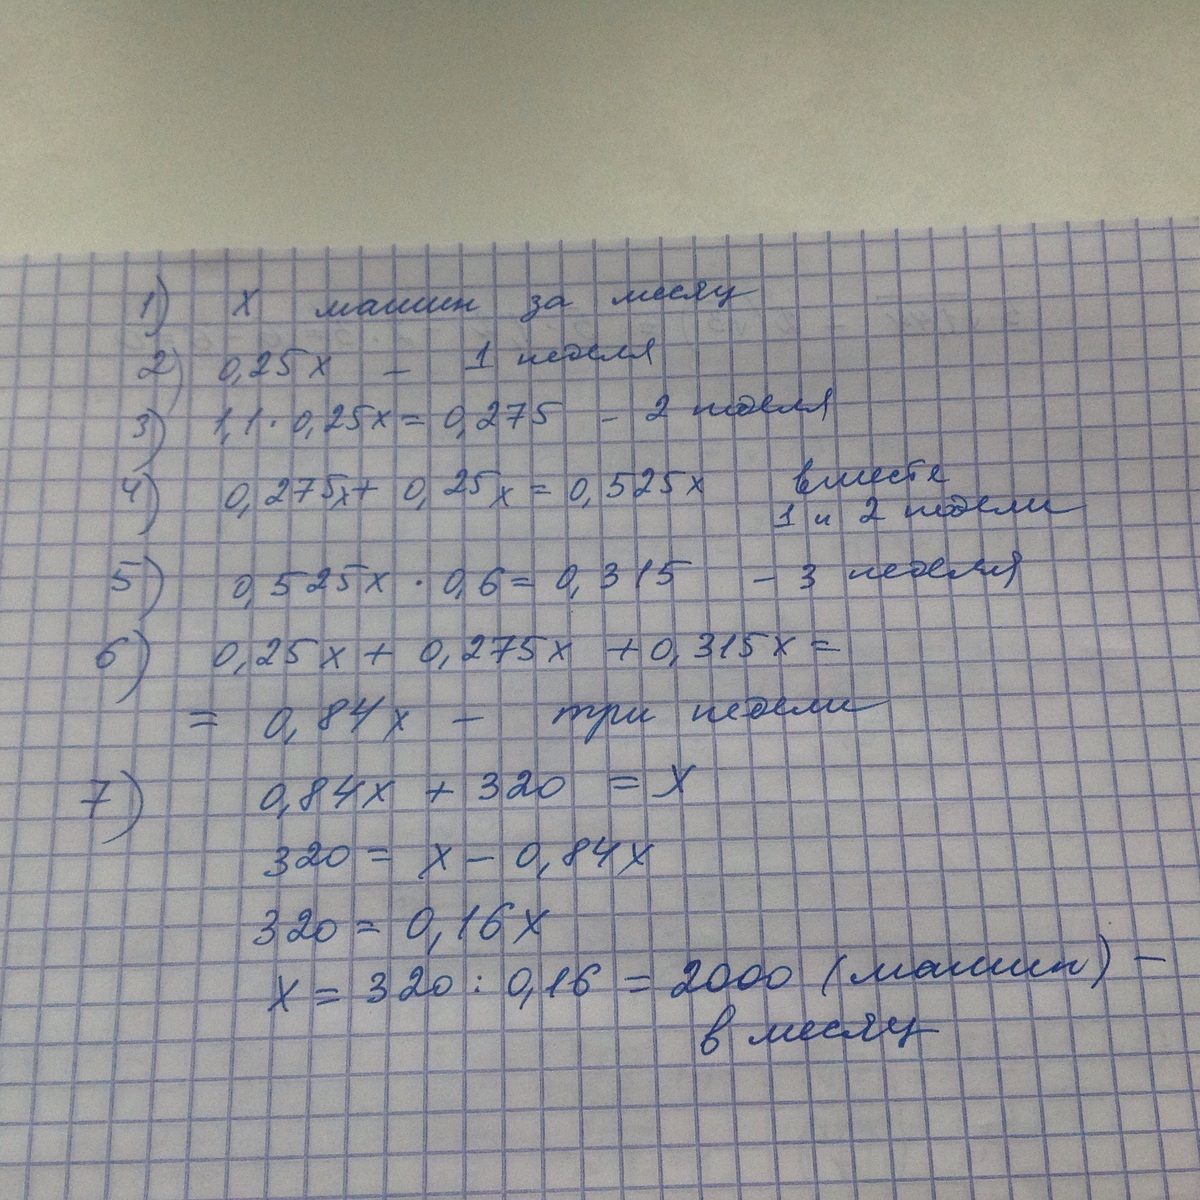 1) х машин за месяц
2) 0,25х - 1 неделя
3) 1,1 · 0,25х = 0,275 - 2 неделя
4) 0,275х + 0,25х = 0,525х вместе
1 и 2 недели
5) 0,525х · 0,6 = 0,315 - 3 неделя
6) 0,25х + 0,275х + 0,315х =
= 0,84х - три недели
7) 0,84х + 320 = х
320 = х - 0,84х
320 = 0,16х
х = 320 : 0,16 = 2000 (машин) -
в месяц